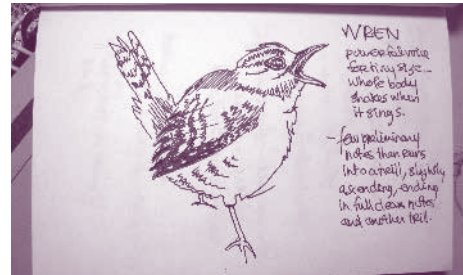 WREN
powerful voice
for tiny size –
whole body
shakes when
it sings.
– few preliminary
notes then runs
into a trill, slightly
ascending, ending
in full clear notes
and another trill.